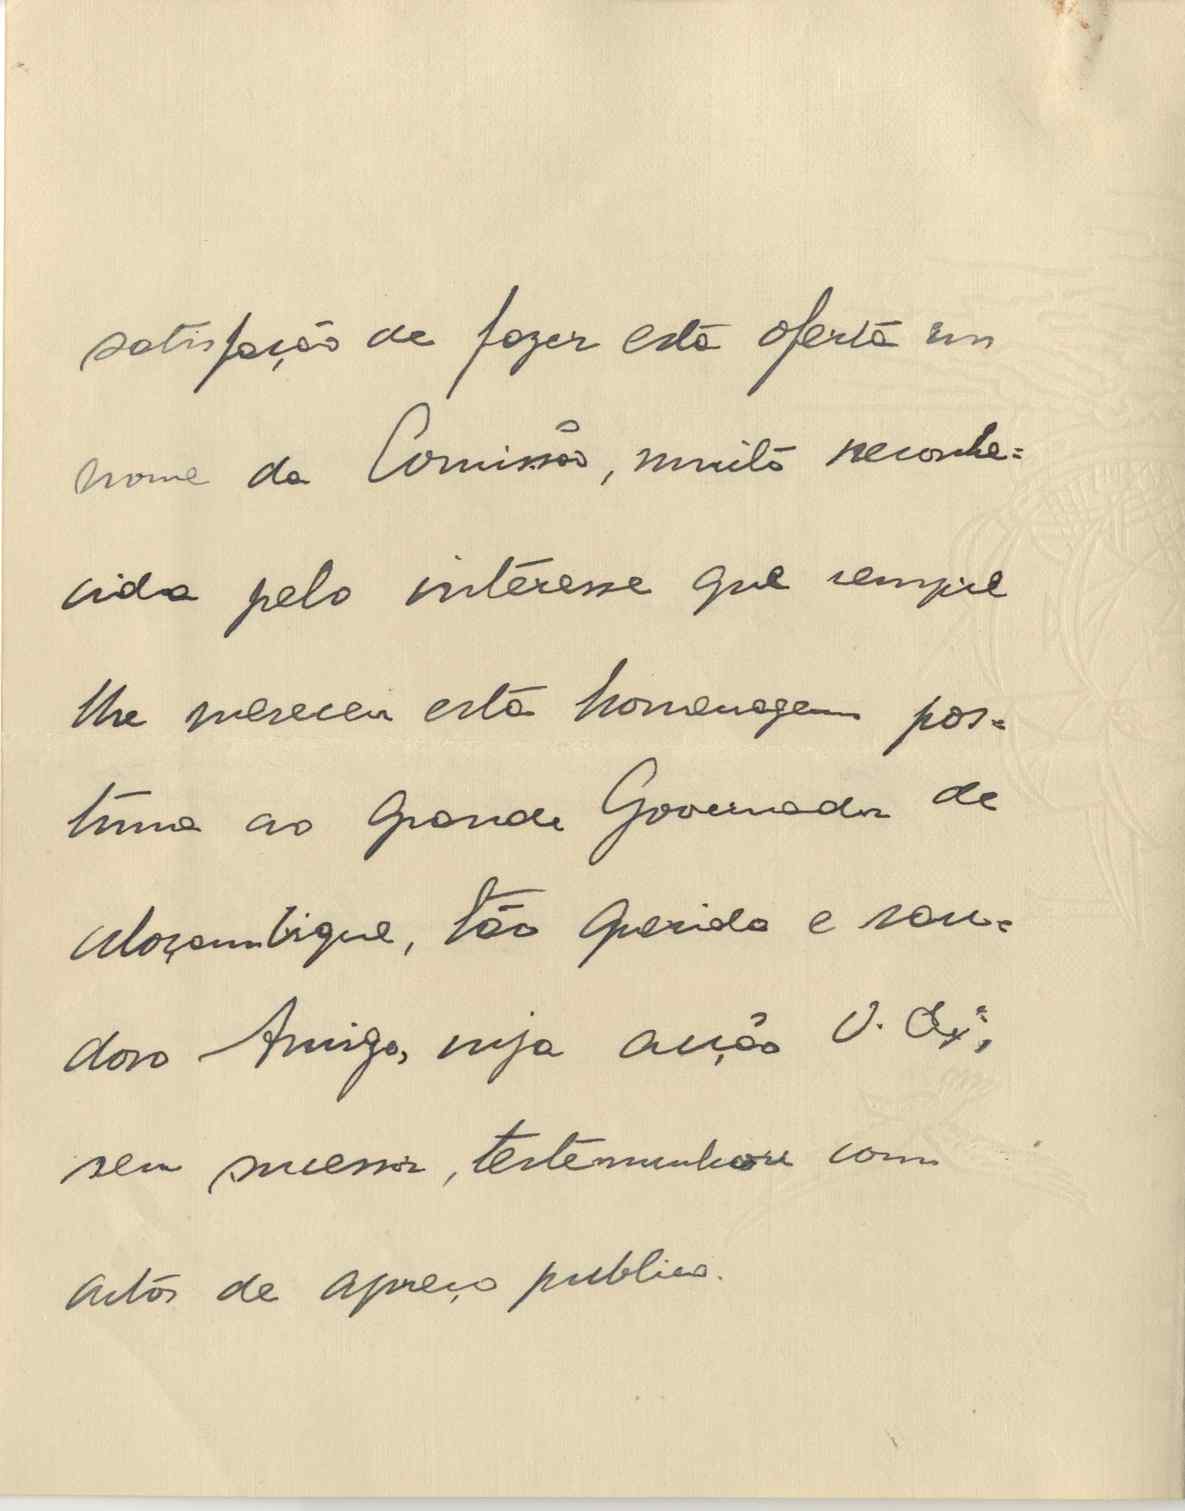 satisfação de fazer esta oferta em
nome da Comissão, muito reconhe=
cida pelo interesse que sempre
lhe mereceu esta homenagem pos=
tuma ao grande Governador de
Moçambique, tão querido e sau=
doso Amigo, cuja acção V. Exª,
seu sucessor, testemunhou com
actos de apreço publico.